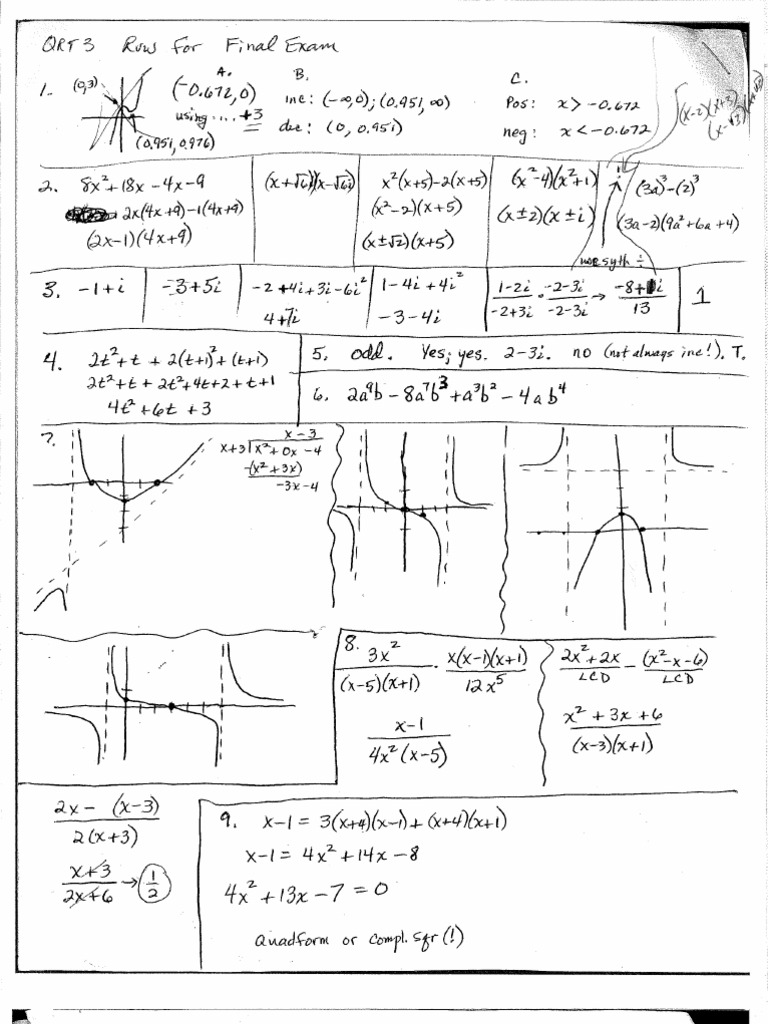 QRT 3 Rvw for Final Exam
1. (0,3)
(0.951, 0.976)
A.
(-0.672, 0)
using .... +3
B.
inc: (-∞,0); (0.951, ∞)
dec: (0, 0.951)
C.
Pos: x > -0.672
neg: x < -0.672
(x-2)(x+3)
2. 8x²+18x-4x-9
2x(4x+9)-1(4x+9)
(2x-1)(4x+9)
(x+√6i)(x-√6i)
x²(x+5)-2(x+5)
(x²-2)(x+5)
(x±√2)(x+5)
(x²-4)(x²+1)
(x±2)(x±i)
use synth ÷
(3a)³-(2)³
(3a-2)(9a²+6a+4)
3. -1+i
-3+5i
-2+4i+3i-6i²
4+7i
1-4i+4i²
-3-4i
1-2i / -2+3i · -2-3i / -2-3i → -8+i / 13
1
4. 2t²+t + 2(t+1)²+(t+1)
2t²+t + 2t²+4t+2+t+1
4t²+6t+3
5. odd. Yes; yes. 2-3i. no (not always inc!). T.
6. 2a⁹b - 8a⁷b³ + a³b² - 4ab⁴
7.
x-3
x+3 | x²+0x-4
-(x²+3x)
-3x-4
8. 3x² / (x-5)(x+1) · x(x-1)(x+1) / 12x⁵
x-1 / 4x²(x-5)
2x²+2x / LCD - (x²-x-6) / LCD
x²+3x+6 / (x-3)(x+1)
2x-(x-3) / 2(x+3)
x+3 / 2x+6 → 1/2
9. x-1 = 3(x+4)(x-1)+(x+4)(x+1)
x-1 = 4x²+14x-8
4x²+13x-7=0
Quadform or compl. sqr (!)